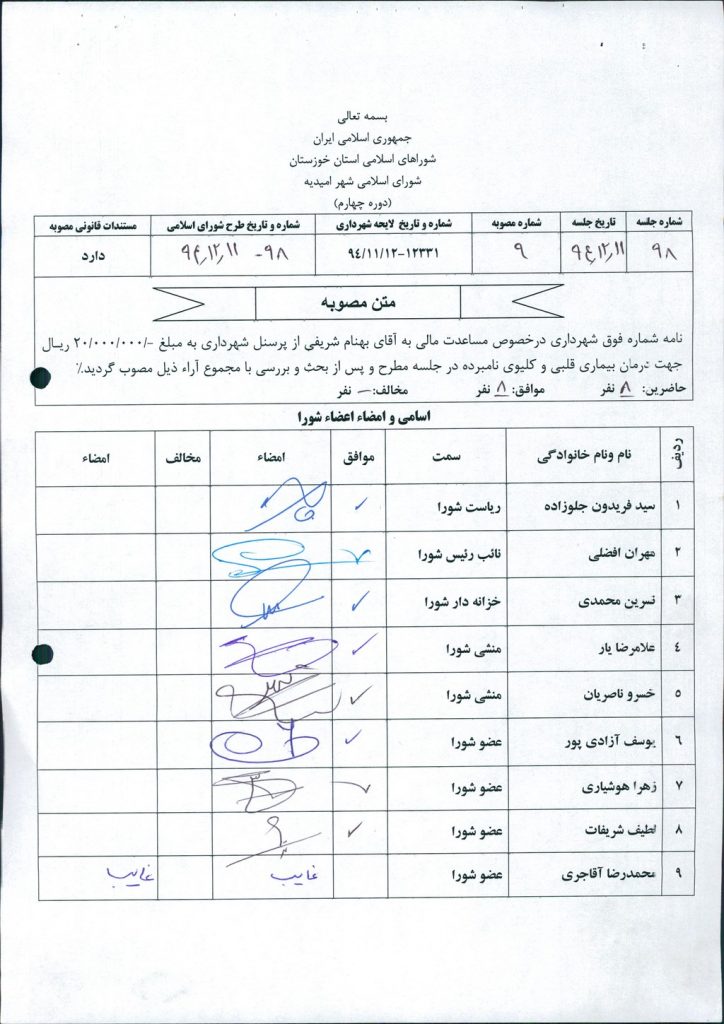 بسمه تعالی
جمهوری اسلامی ایران
شوراهای اسلامی استان خوزستان
شورای اسلامی شهر امیدیه
(دوره چهارم)
شماره جلسه تاریخ جلسه شماره مصوبه شماره و تاریخ لایحه شهرداری شماره و تاریخ طرح شورای اسلامی مستندات قانونی مصوبه
۹۸ ۹۴،۱۲،۱۱ ۹ ۹۴/۱۱/۱۲-۱۲۳۳۱ ۹۸- ۹۴،۱۲،۱۱ دارد
متن مصوبه
نامه شماره فوق شهرداری درخصوص مساعدت مالی به آقای بهنام شریفی از پرسنل شهرداری به مبلغ -/۲۰/۰۰۰/۰۰۰ ریال
جهت درمان بیماری قلبی و کلیوی نامبرده در جلسه مطرح و پس از بحث و بررسی با مجموع آراء ذیل مصوب گردید.٪
حاضرین: ۸ نفر موافق: ۸ نفر مخالف: - نفر
اسامی و امضاء اعضاء شورا
ردیف نام ونام خانوادگی سمت موافق امضاء مخالف امضاء
۱ سید فریدون جلوزاده ریاست شورا ✓
۲ مهران افضلی نائب رئیس شورا ✓
۳ نسرین محمدی خزانه دار شورا ✓
۴ علامرضا یار منشی شورا ✓
۵ خسرو ناصریان منشی شورا ✓
۶ یوسف آزادی پور عضو شورا ✓
۷ زهرا هوشیاری عضو شورا ✓
۸ لطیف شریفات عضو شورا ✓
۹ محمدرضا آقاجری عضو شورا غایب غایب